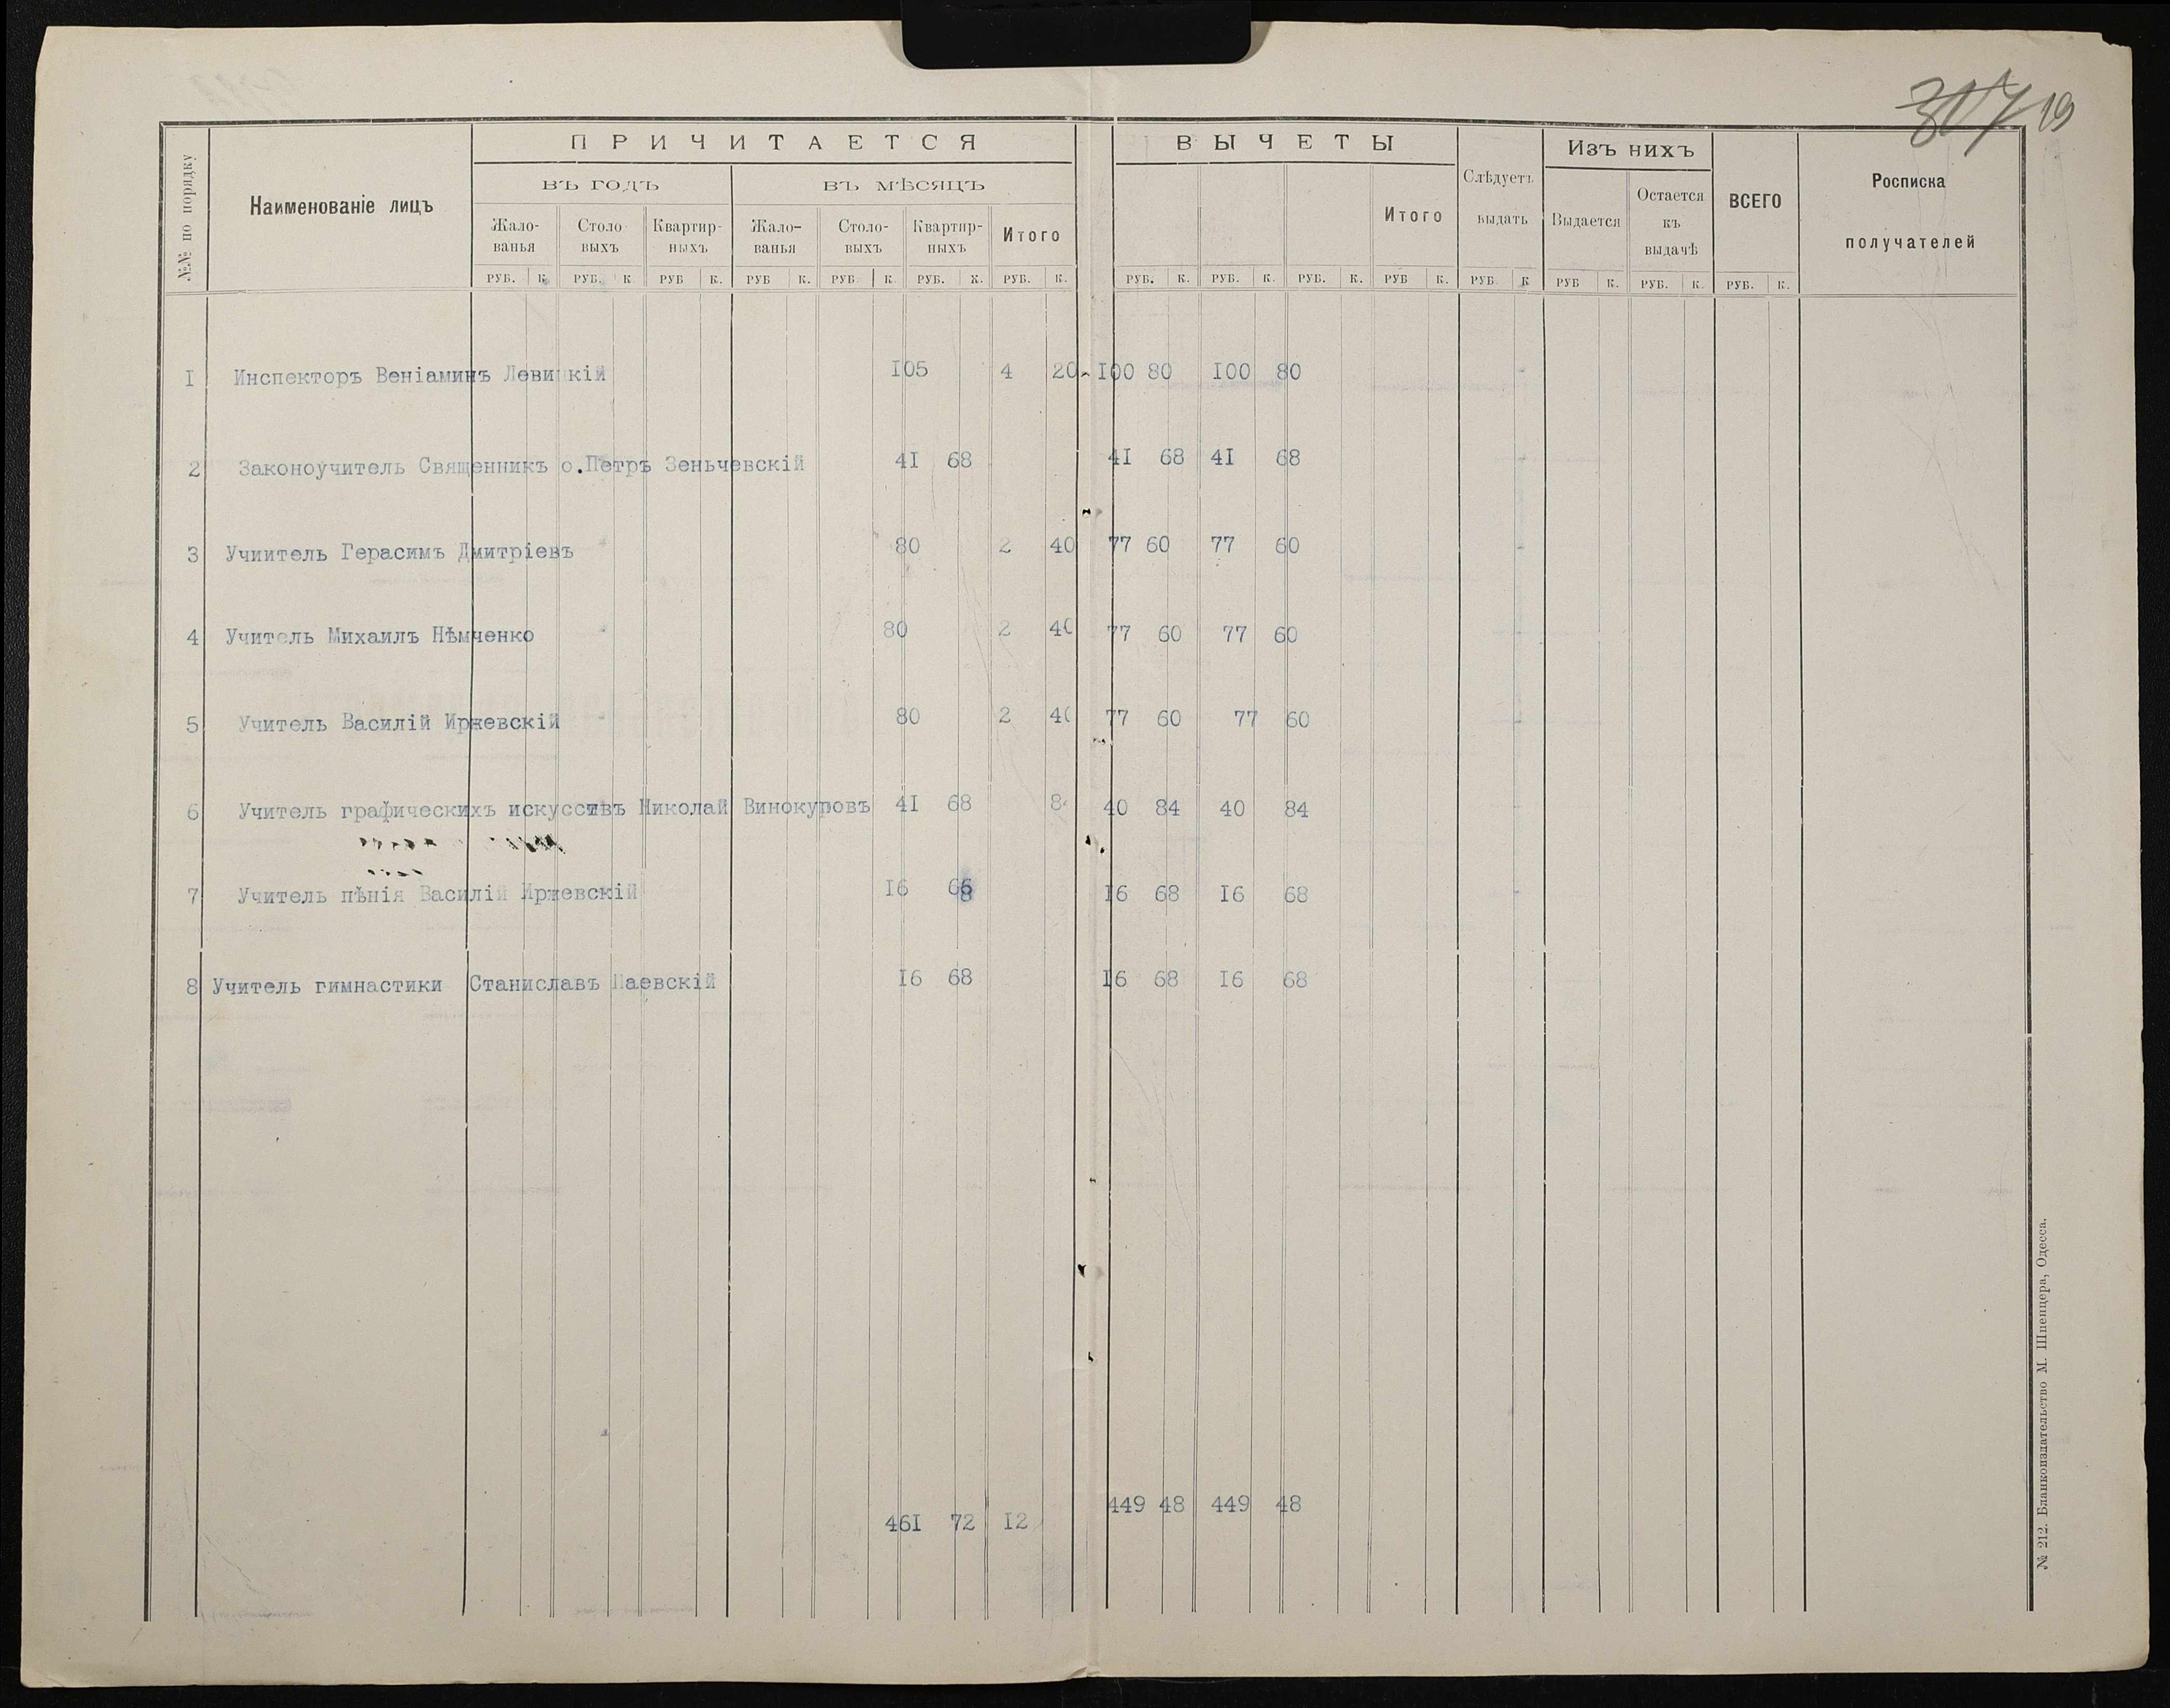 307 19
ПРИЧИТАЕТСЯ ВЫЧЕТЫ
№№ по порядку Наименованіе лицъ въ годъ въ мѣсяцъ Слѣдуетъ выдать Изъ нихъ ВСЕГО Росписка получателей
Жало-ванья Столо-выхъ Квартир-ныхъ Жало-ванья Столо-выхъ Квартир-ныхъ Итого Итого Выдается Остается къ выдачѣ
РУБ. К. РУБ. К. РУБ К. РУБ К. РУБ К. РУБ. К. РУБ. К. РУБ. К. РУБ. К. РУБ. К. РУБ К. РУБ. К РУБ К. РУБ. К. РУБ. К.
I Инспекторъ Веніаминъ Левицкій I05 4 20 I00 80 I00 80
2 Законоучитель Священникъ о.Петръ Зеньчевскій 4I 68 4I 68 4I 68
3 Учиитель Герасимъ Дмитріевъ 80 2 40 77 60 77 60
4 Учитель Михаилъ Нѣмченко 80 2 40 77 60 77 60
5 Учитель Василій Иржевскій 80 2 40 77 60 77 60
6 Учитель графическихъ искусствъ Николай Винокуровъ 4I 68 84 40 84 40 84
7 Учитель пѣнія Василій Иржевскій I6 68 I6 68 I6 68
8 Учитель гимнастики Станиславъ Паевскій I6 68 I6 68 I6 68
46I 72 I2 449 48 449 48
№ 212. Бланкоиздательство М. Шпенцера, Одесса.